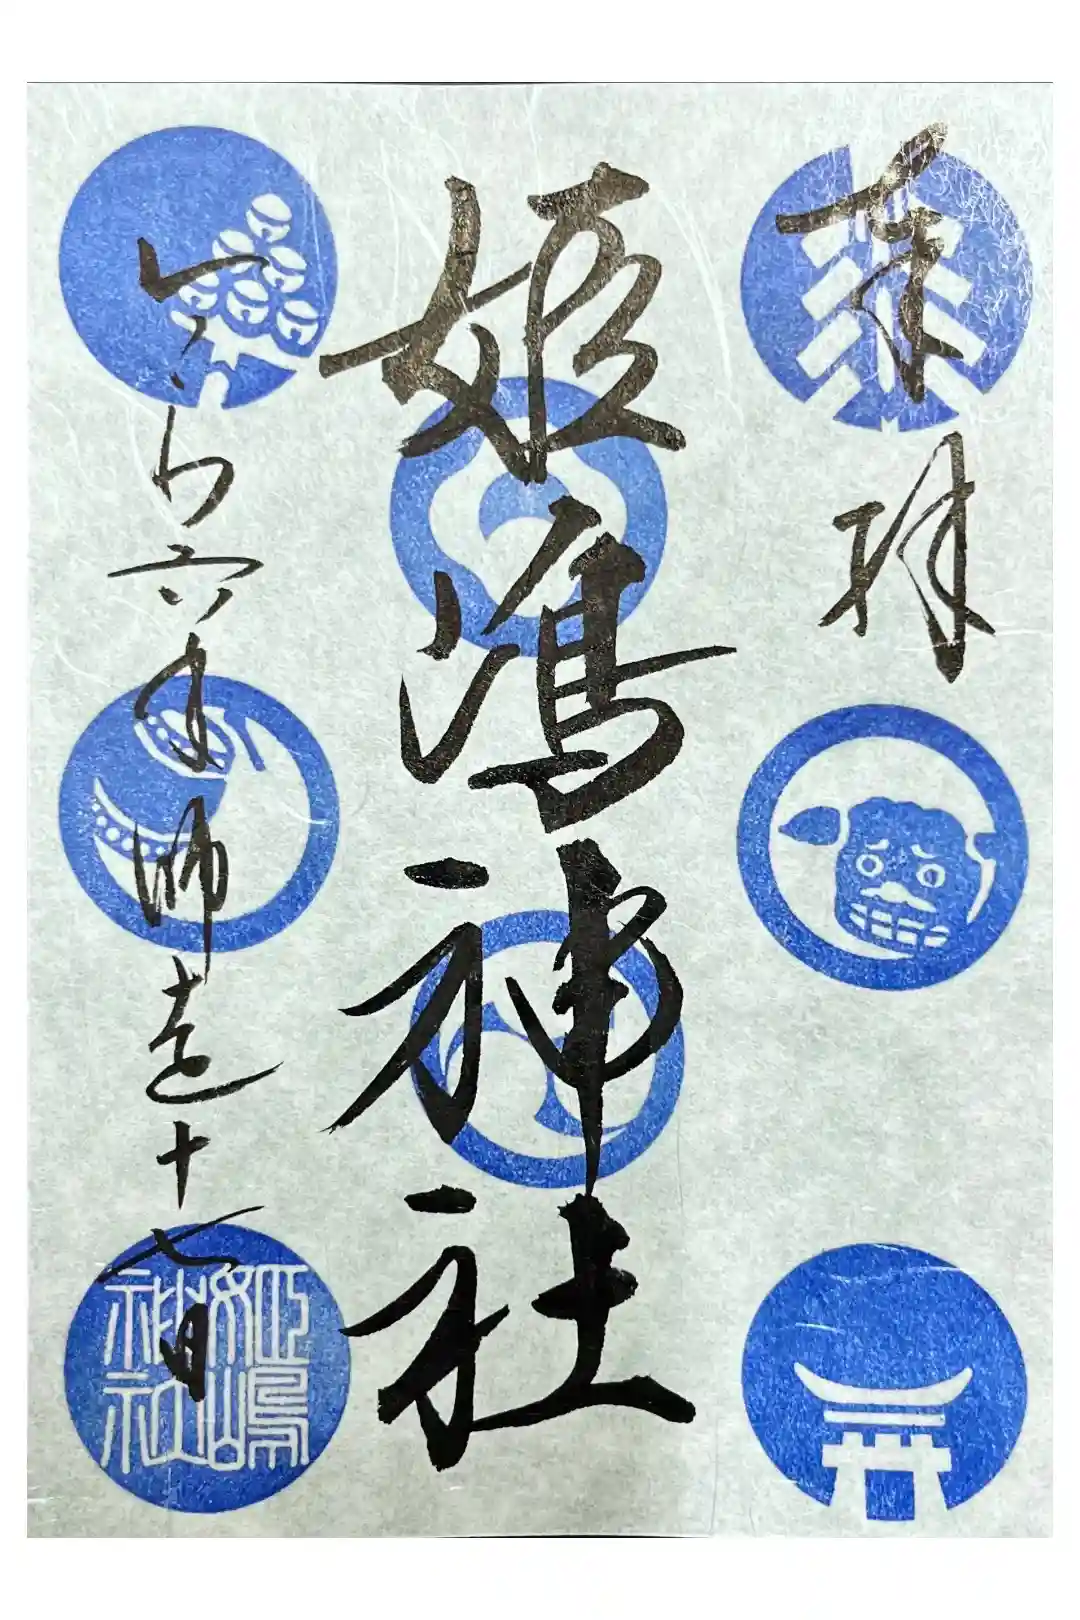 奉拝
姫嶋神社
令和六年師走十七日
姫嶋
神社